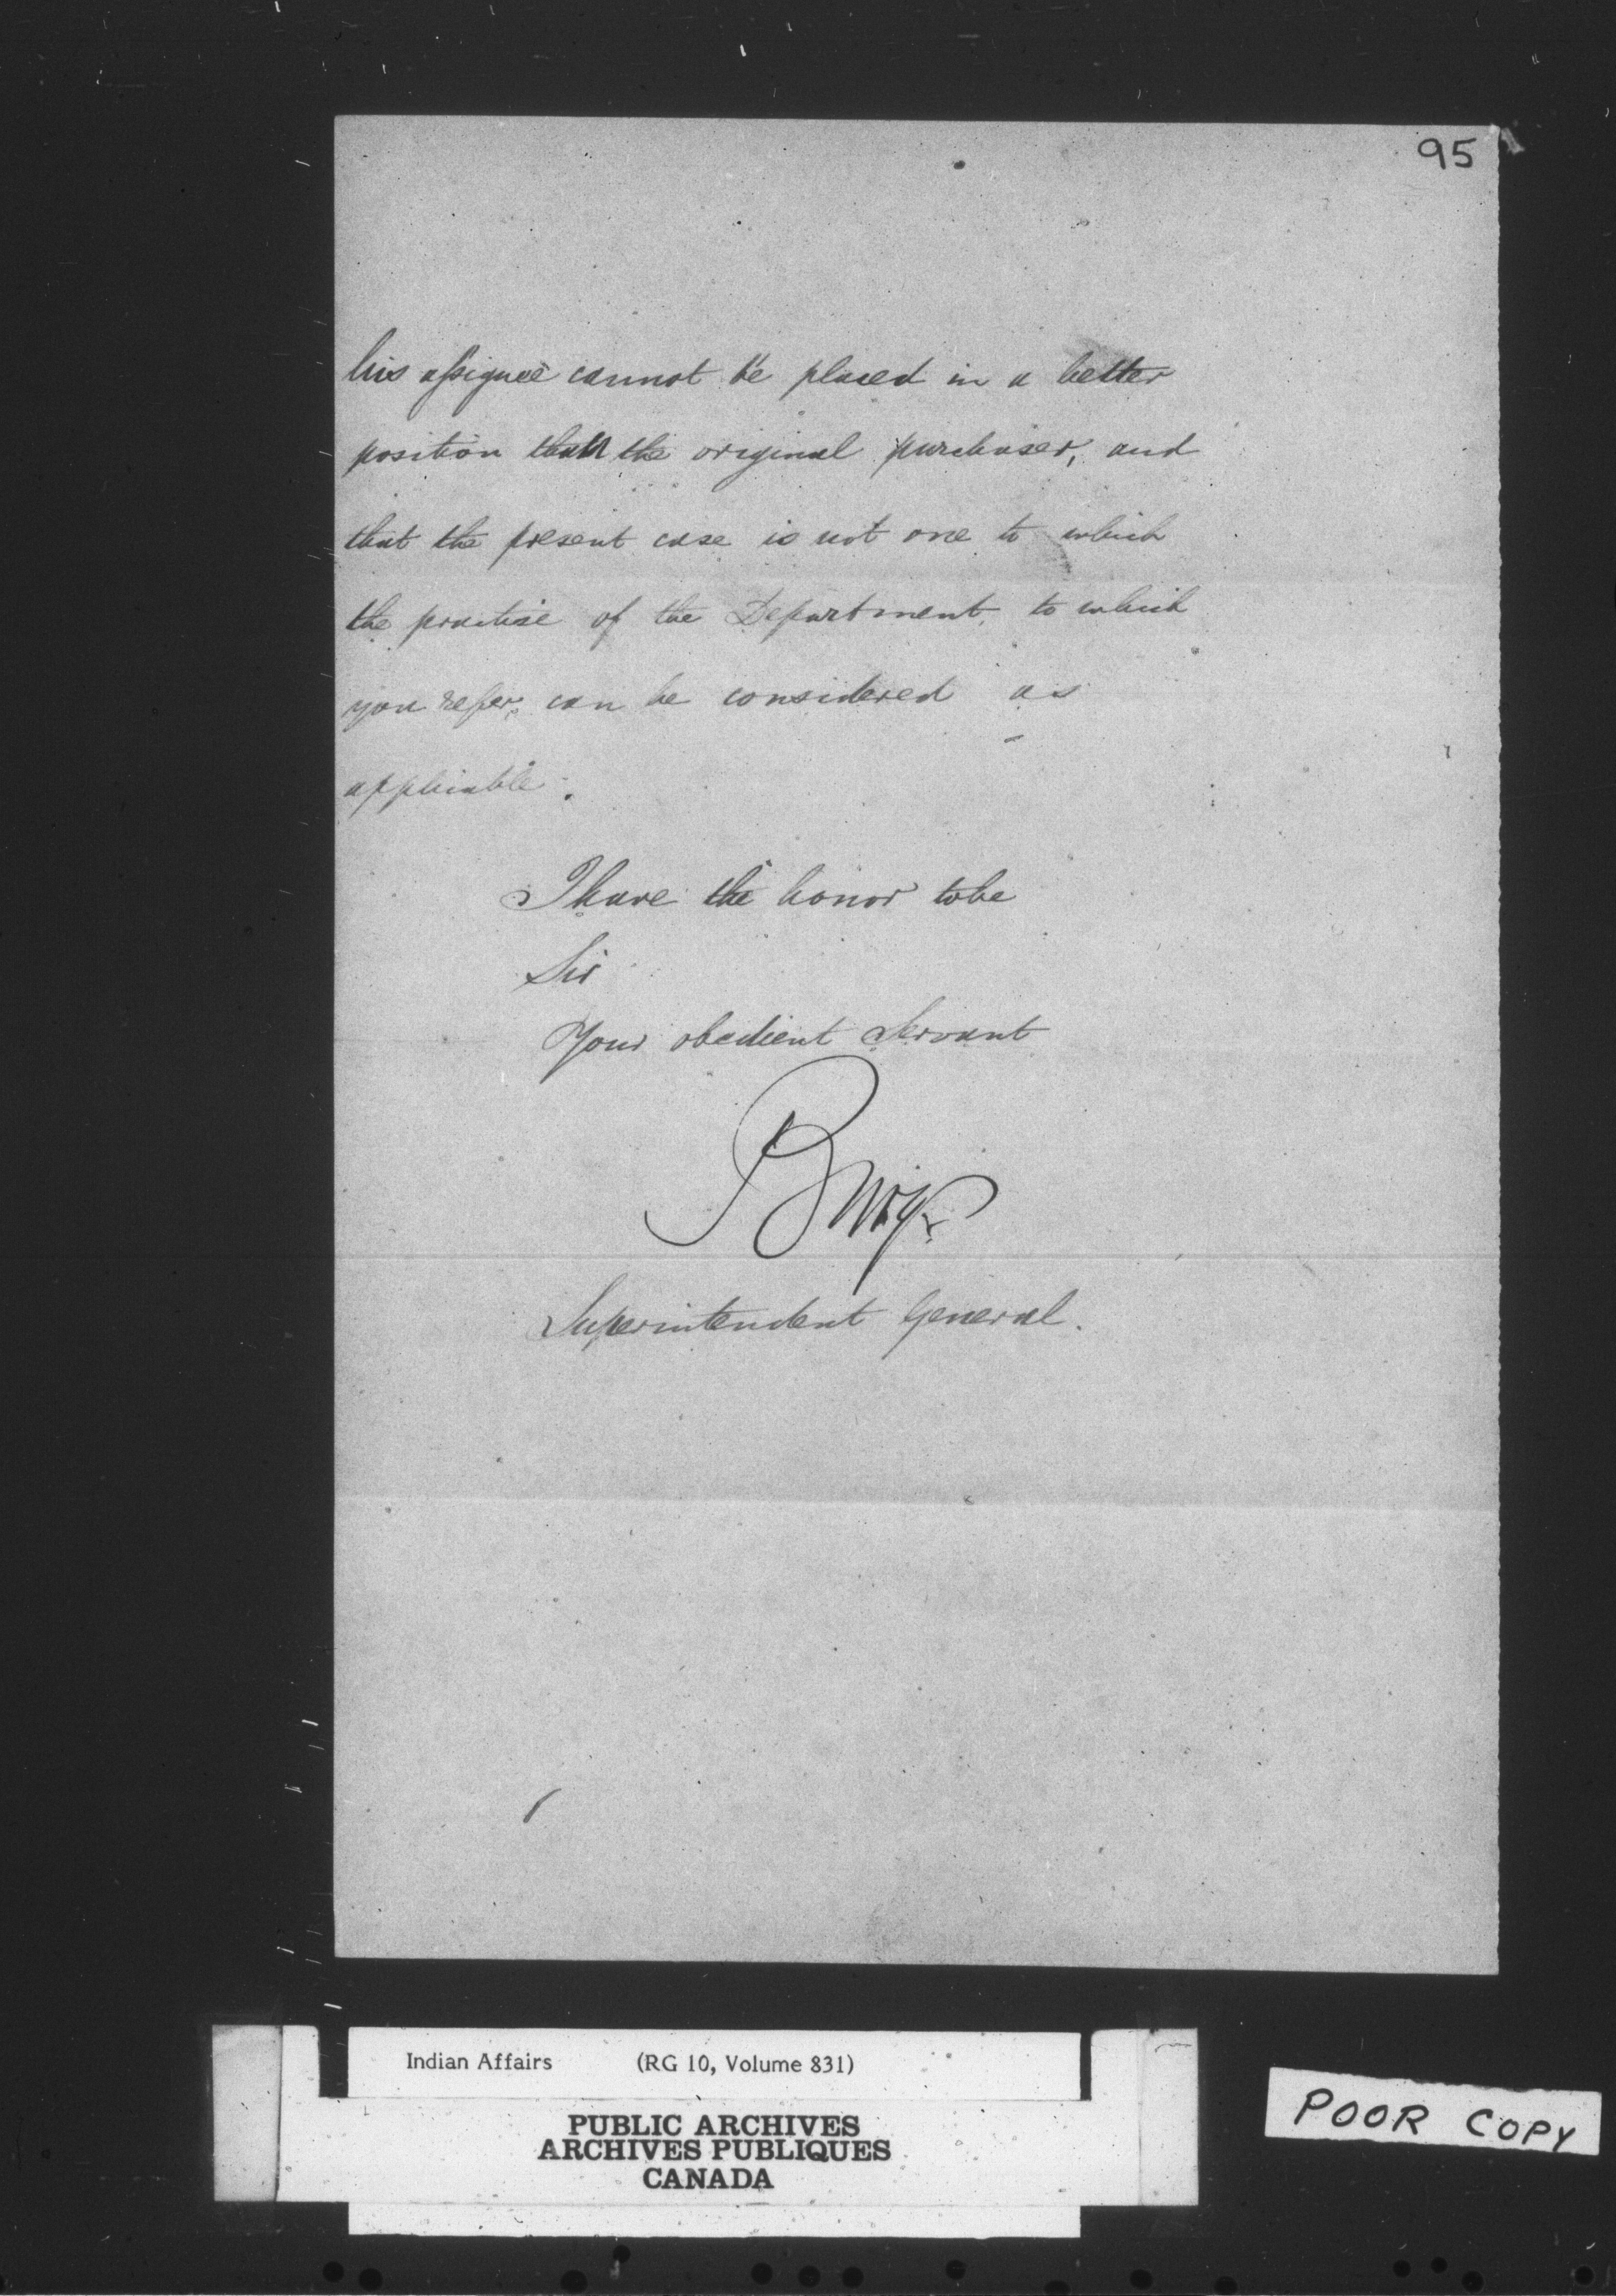 95
his assignee cannot be placed in a better
position than the original purchaser, and
that the present case is not one to which
the practise of the Department, to which
you refer, can be considered as
applicable.
I have the honor to be
Sir
Your obedient Servant
Superintendent General.
Indian Affairs (RG 10, Volume 831)
PUBLIC ARCHIVES
ARCHIVES PUBLIQUES
CANADA
POOR COPY